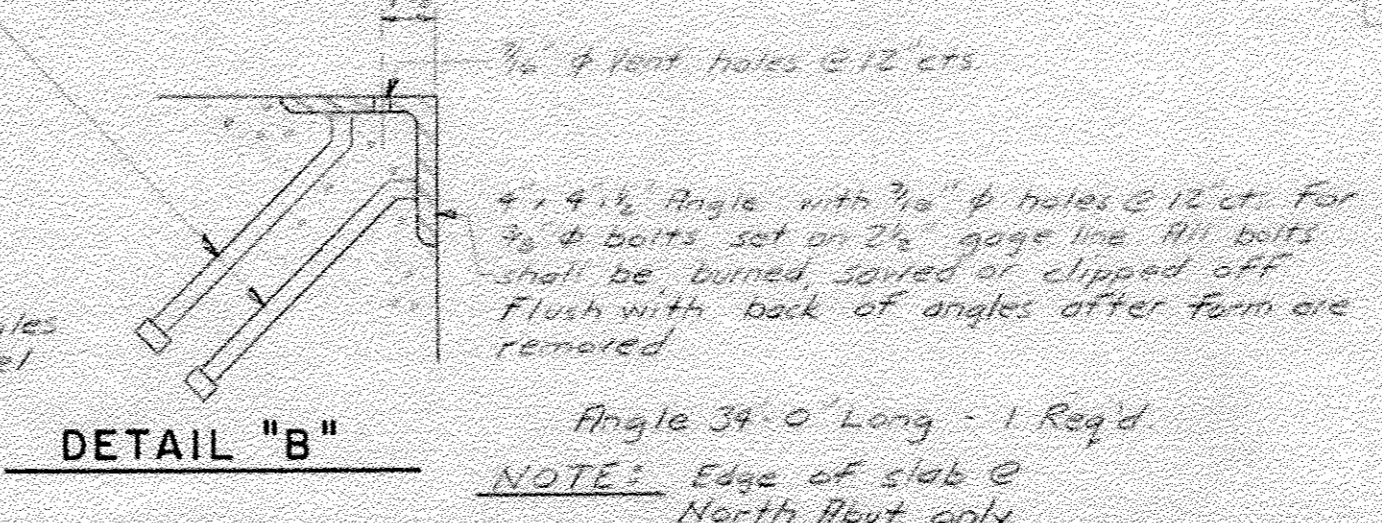 Vent holes @ 12" cts.
4" x 4" x ½" Angle with ⁹⁄₁₆" φ holes @ 12" ct. For
φ bolts set on 2½" gage line All bolts
shall be, burned, sawed or clipped off
Flush with back of angles after form are
removed
DETAIL "B"
Angle 34'-0" Long - 1 Req'd.
NOTE: Edge of slab @
North Abut only